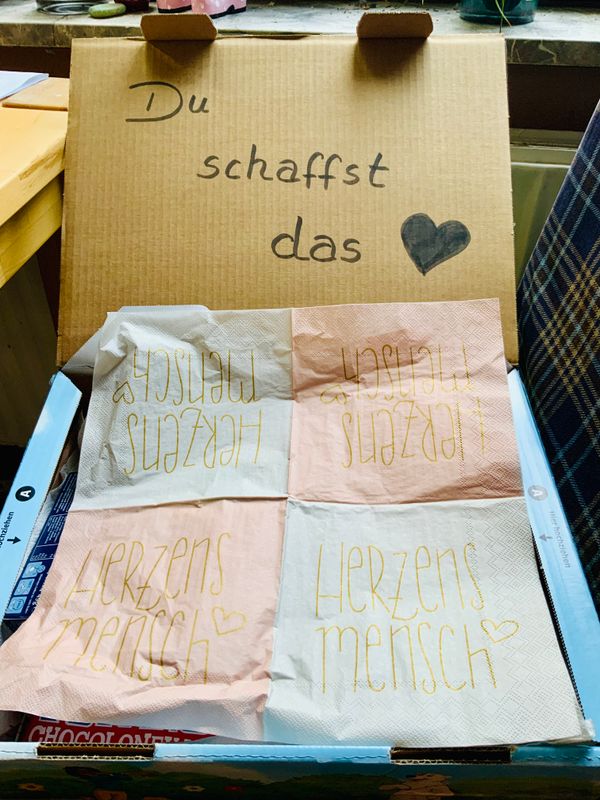 Du
schaffst
das
Herzens
mensch
Herzens
mensch
Herzens
mensch
Herzens
mensch
A
Hierhochziehen
A
CHOCOLONE